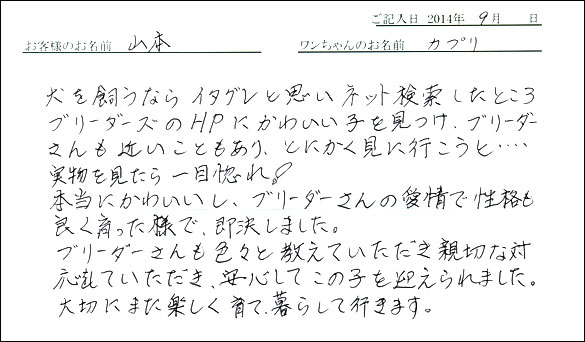 ご記入日 2014年 9月 日
お客様のお名前 山本 ワンちゃんのお名前 カプリ
犬を飼うなら イタグレと思い ネット検索したところ
ブリーダーズのHPにかわいい子を見つけ、ブリーダー
さんも近いこともあり、とにかく見に行こうと‥‥
実物を見たら一目惚れ!
本当にかわいいし、ブリーダーさんの愛情で性格も
良く育った様で、即決しました。
ブリーダーさんも色々と教えていただき親切な対
応をしていただき、安心してこの子を迎えられました。
大切にまた楽しく育て、暮らして行きます。